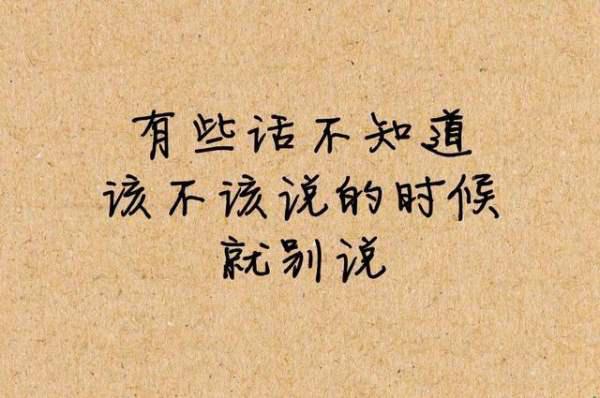 有些话不知道
该不该说的时候
就别说